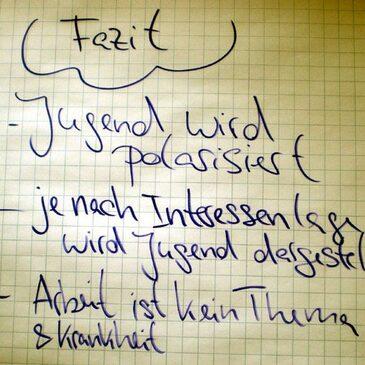 Fazit
- Jugend wird
polarisiert
- je nach Interessenlage
wird Jugend dargestel
- Arbeit ist kein Thema
& Krankheit